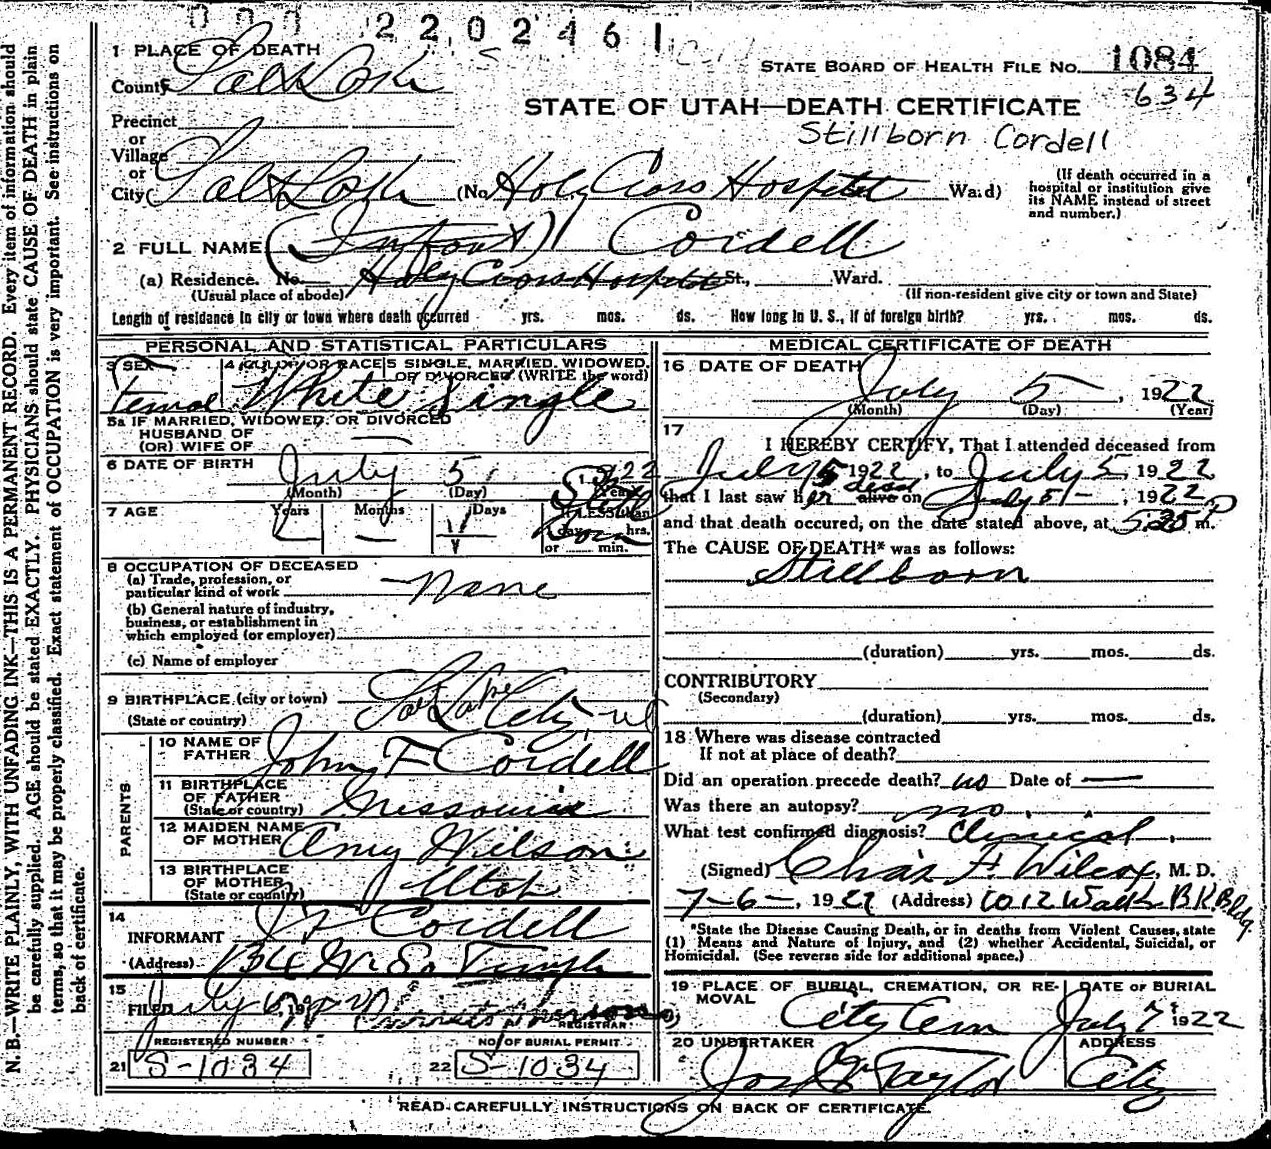 000 2202461
1 PLACE OF DEATH
County Salt Lake
STATE BOARD OF HEALTH FILE No. 1084
634
STATE OF UTAH—DEATH CERTIFICATE
Stillborn Cordell
Precinct
or
Village
or
City Salt Lake (No. Holy Cross Hospital Ward)
(If death occurred in a hospital or institution give its NAME instead of street and number.)
2 FULL NAME (Infant) Cordell
(a) Residence. No. Holy Cross Hospital St., Ward.
(Usual place of abode) (If non-resident give city or town and State)
Length of residence in city or town where death occurred yrs. mos. ds. How long in U. S., if of foreign birth? yrs. mos. ds.
PERSONAL AND STATISTICAL PARTICULARS
3 SEX 4 COLOR OR RACE 5 SINGLE, MARRIED, WIDOWED, OR DIVORCED (WRITE the word)
Female White Single
5a IF MARRIED, WIDOWED, OR DIVORCED
HUSBAND OF
(OR) WIFE OF
6 DATE OF BIRTH July 5, 1922
(Month) (Day) (Year)
7 AGE Years Months Days If LESS than
1 day, hrs.
or min.
Still Born
8 OCCUPATION OF DECEASED
(a) Trade, profession, or
particular kind of work None
(b) General nature of industry,
business, or establishment in
which employed (or employer)
(c) Name of employer
9 BIRTHPLACE (city or town) Salt Lake City, Ut
(State or country)
PARENTS
10 NAME OF FATHER John F Cordell
11 BIRTHPLACE OF FATHER (State or country) Missouri
12 MAIDEN NAME OF MOTHER Amy Wilson
13 BIRTHPLACE OF MOTHER (State or country) Utah
14
INFORMANT J F Cordell
(Address) 134 W. So Temple
15
FILED July 6, 19
REGISTRAR
REGISTERED NUMBER NO. OF BURIAL PERMIT
21 S-1034 22 S-1034
MEDICAL CERTIFICATE OF DEATH
16 DATE OF DEATH
July 5, 1922
(Month) (Day) (Year)
17
I HEREBY CERTIFY, That I attended deceased from
July 5 1922, to July 5 1922
that I last saw her alive dead on July 5, 1922
and that death occured, on the date stated above, at P m.
The CAUSE OF DEATH* was as follows:
Stillborn
(duration) yrs. mos. ds.
CONTRIBUTORY
(Secondary)
(duration) yrs. mos. ds.
18 Where was disease contracted
If not at place of death?
Did an operation precede death? no Date of —
Was there an autopsy? no.
What test confirmed diagnosis? Clinical
(Signed) Chas F. Wilcox, M. D.
7-6-, 1922 (Address) 1012 Walker BK. Bldg.
*State the Disease Causing Death, or in deaths from Violent Causes, state
(1) Means and Nature of Injury, and (2) whether Accidental, Suicidal, or
Homicidal. (See reverse side for additional space.)
19 PLACE OF BURIAL, CREMATION, OR REMOVAL DATE OF BURIAL
City Cem July 7 1922
20 UNDERTAKER ADDRESS
Jos E Taylor City
READ CAREFULLY INSTRUCTIONS ON BACK OF CERTIFICATE.
N. B.—WRITE PLAINLY, WITH UNFADING INK—THIS IS A PERMANENT RECORD. Every item of information should
be carefully supplied. AGE should be stated EXACTLY. PHYSICIANS should state CAUSE OF DEATH in plain
terms, so that it may be properly classified. Exact statement of OCCUPATION is very important. See instructions on
back of certificate.